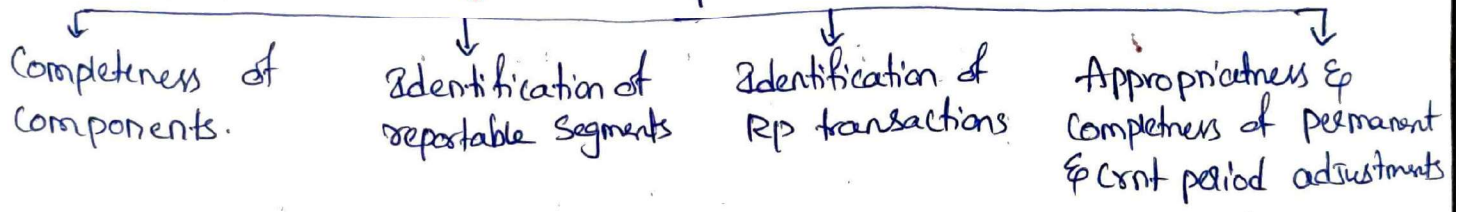 Completeness of
components.
Identification of
reportable Segments
Identification of
RP transactions
Appropriatness &
completness of permanent
& Crnt period adjustments